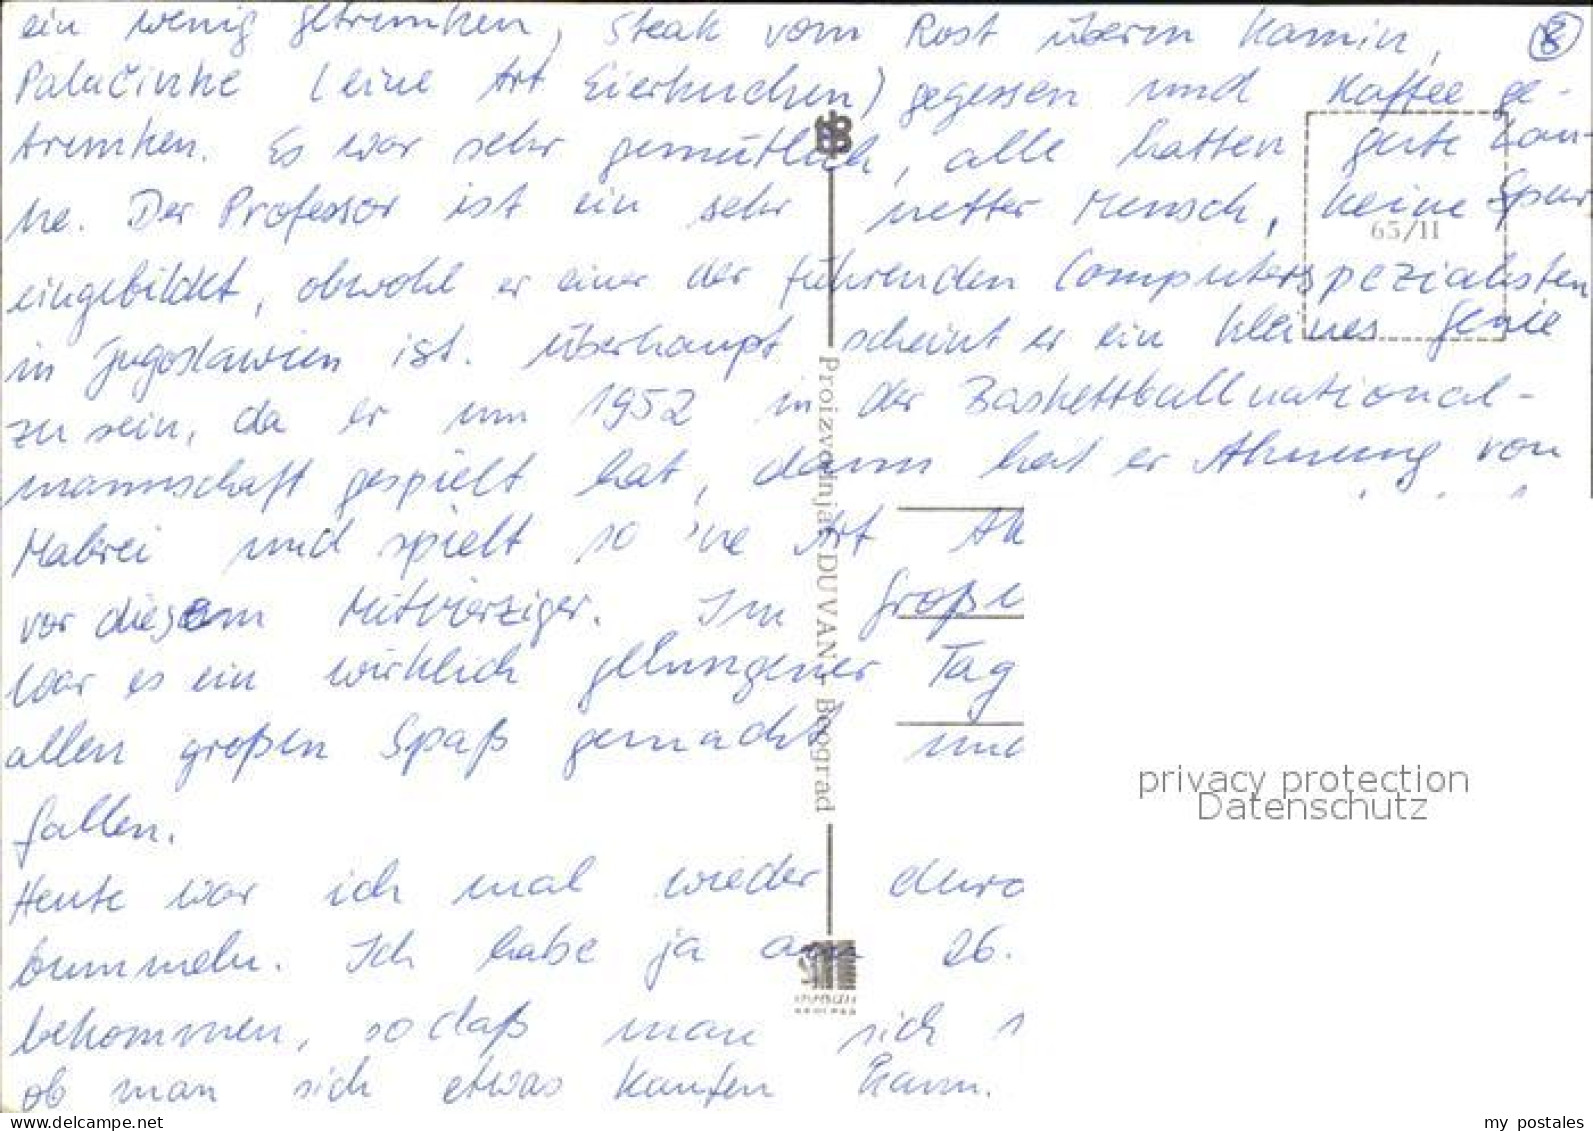 ein wenig getrunken, Steak vom Rost überm Kamin, 8
Palačinke (eine Art Eierkuchen) gegessen und Kaffee ge-
trunken. Es war sehr gemütlich, alle hatten gute Lau-
ne. Der Professor ist ein sehr netter Mensch, keine Spur
65/II
eingebildet, obwohl er einer der führenden Computerspezialisten
in Jugoslawien ist. Überhaupt scheint er ein kleines Genie
zu sein, da er um 1952 in der Baskettballnational-
mannschaft gespielt hat, dann hat er Ahnung von
Malerei und spielt so 'ne Art Ak
vor diesem Mitvierziger. Im Große
war es ein wirklich gelungener Tag
allen großen Spaß gemacht und
fallen.
Heute war ich mal wieder durc
bummeln. Ich habe ja am 26.
bekommen, so daß man sich
ob man sich etwas kaufen kann.
Proizvodnja: DUVAN - Beograd
privacy protection
Datenschutz
www.delcampe.net
my_postales